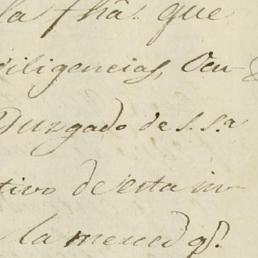 la fhâ. que
diligencias, Ocu-
Juzgado de S. Sa.
tivo de esta in-
la merced q.